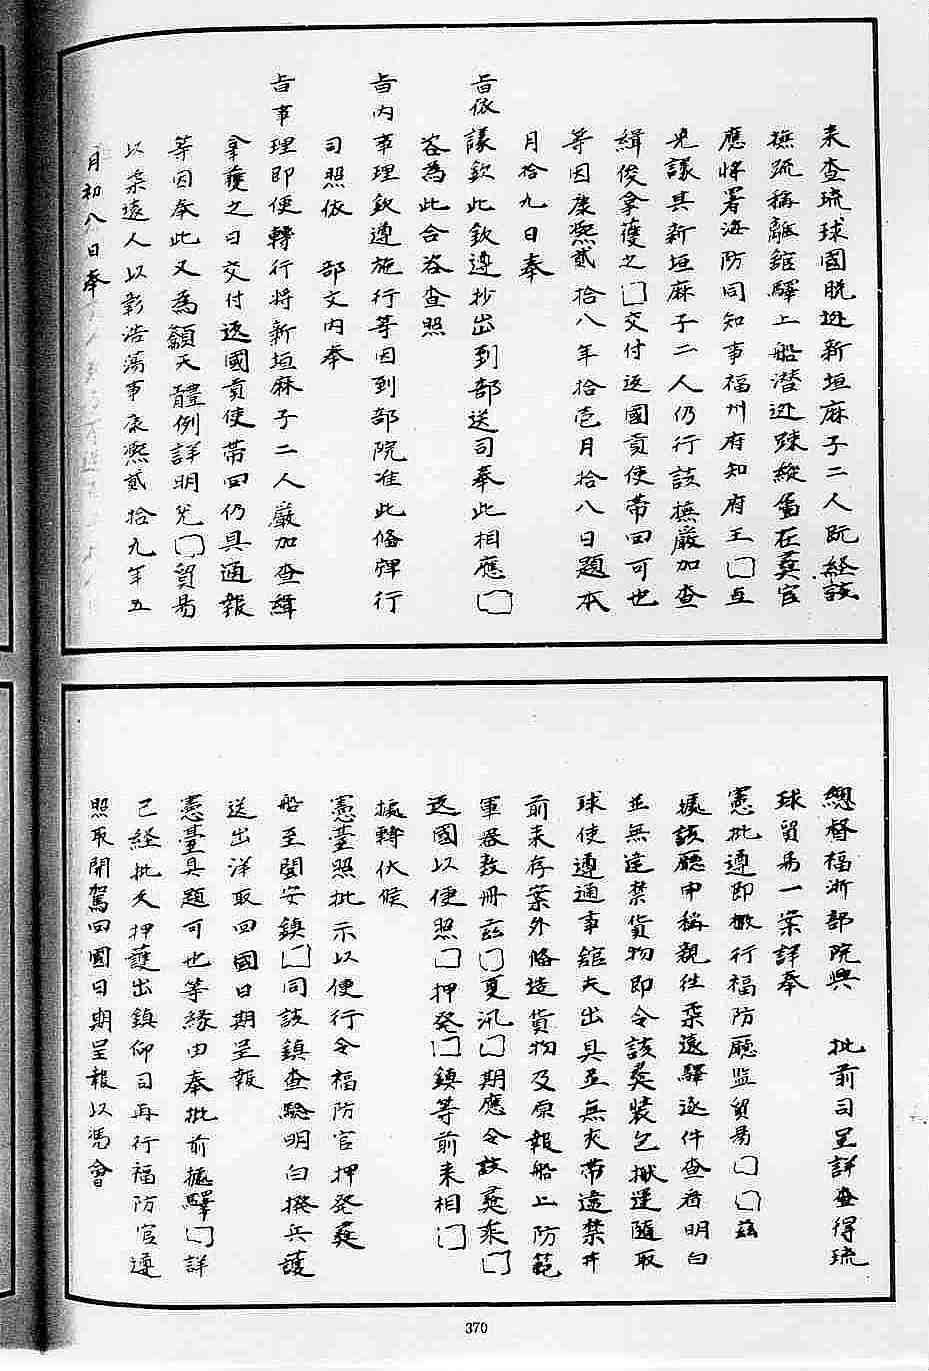 来查琉球國脱逃新垣麻子二人既経該
撫疏稱離舘驛上船潜逃踪縱蚤在奠官
應將署海防同知事福州府知府王□亙
免議其新垣麻子二人仍行該撫嚴加查
緝俊拿獲之□交付返國貢使帯回可也
等因康熙貳拾八年拾壱月拾八日題本
月拾九日奉
旨依議欽此欽遵抄出到部送司奉此相應□
咨為此合咨查照
旨内事理欽遵施行等因到部院准此條牌行
司照依　部文内奉
旨事理即便轉行将新垣麻子二人嚴加查緝
拿獲之日交付返國貢使帯回仍具通報
等因奉此又為籲天體例詳明免□貿易
以柔遠人以彰浩蕩事康熙貳拾九年五
月初八日奉
總督福浙部院興　批前司呈詳查得琉
球貿易一案詳奉
憲批遵即檄行福防廳監貿易□□茲
據該廳申稱親往柔遠驛逐件查看明白
並無違禁貨物即令該夷装包搬運隨取
球使遵通事舘夫出具並無夾帯違禁并
前来存案外條造貨物及原報船上防範
軍器数冊茲□夏汛□期應令該夷乘□
返國以便照□押發□鎮等前来相□
據轉伏候
憲臺照批示以便行令福防官押發夷
船至閩安鎮□同該鎮查驗明白撥兵護
送出洋取回國日期呈報
憲臺具題可也等緣由奉批前據驛□詳
已経批久押護出鎮仰司再行福防官遵
照取開駕回國日期呈報以馮會
370